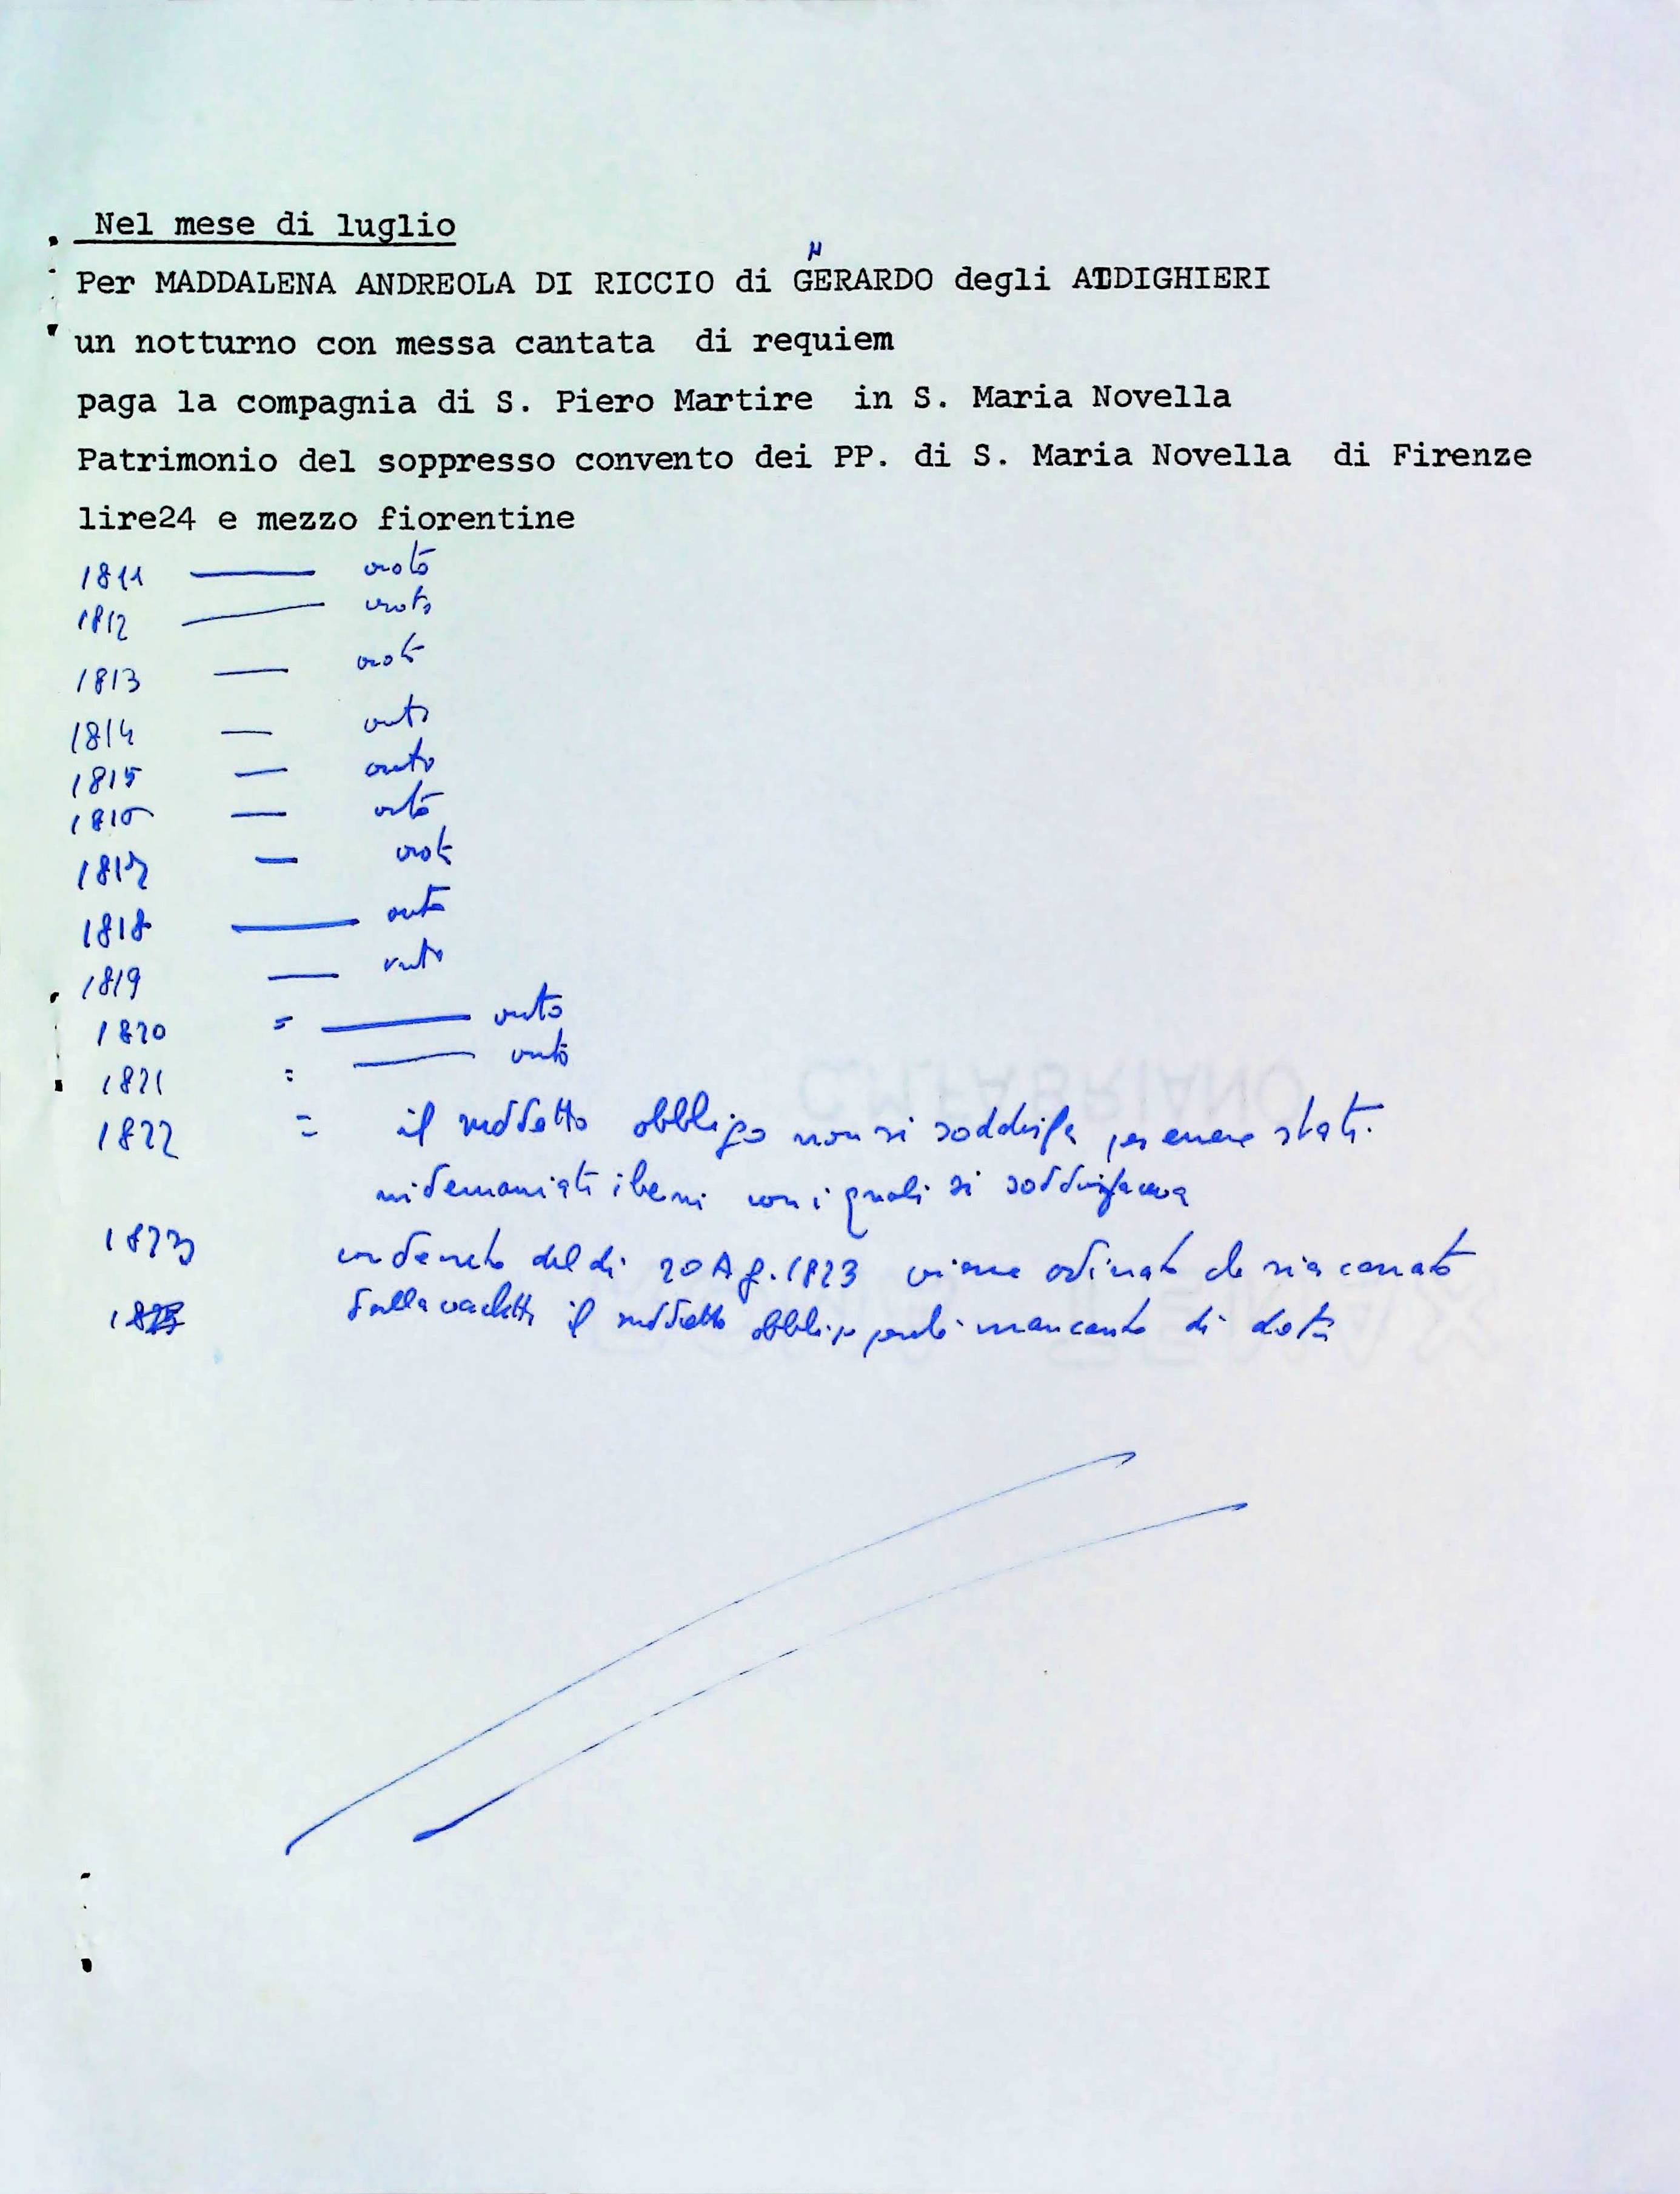 Nel mese di luglio
Per MADDALENA ANDREOLA DI RICCIO di GERARDO degli ALDIGHIERI
un notturno con messa cantata di requiem
paga la compagnia di S. Piero Martire in S. Maria Novella
Patrimonio del soppresso convento dei PP. di S. Maria Novella di Firenze
lire24 e mezzo fiorentine
1811 —— vuoto
1812 —— vuoto
1813 — vuoto
1814 — vuoto
1815 — vuoto
1816 — vuoto
1817 — vuoto
1818 —— vuoto
1819 — vuoto
1820 = —— vuoto
1821 = —— vuoto
1822 = il suddetto obbligo non si soddisfa per essere stati
indemaniati i beni con i quali si soddisfaceva
1823 del di 20 Ag. 1823 viene ordinato che sia cassato
dalla vacchetta il suddetto obbligo perché mancante di dote
C.M.FABRIANO